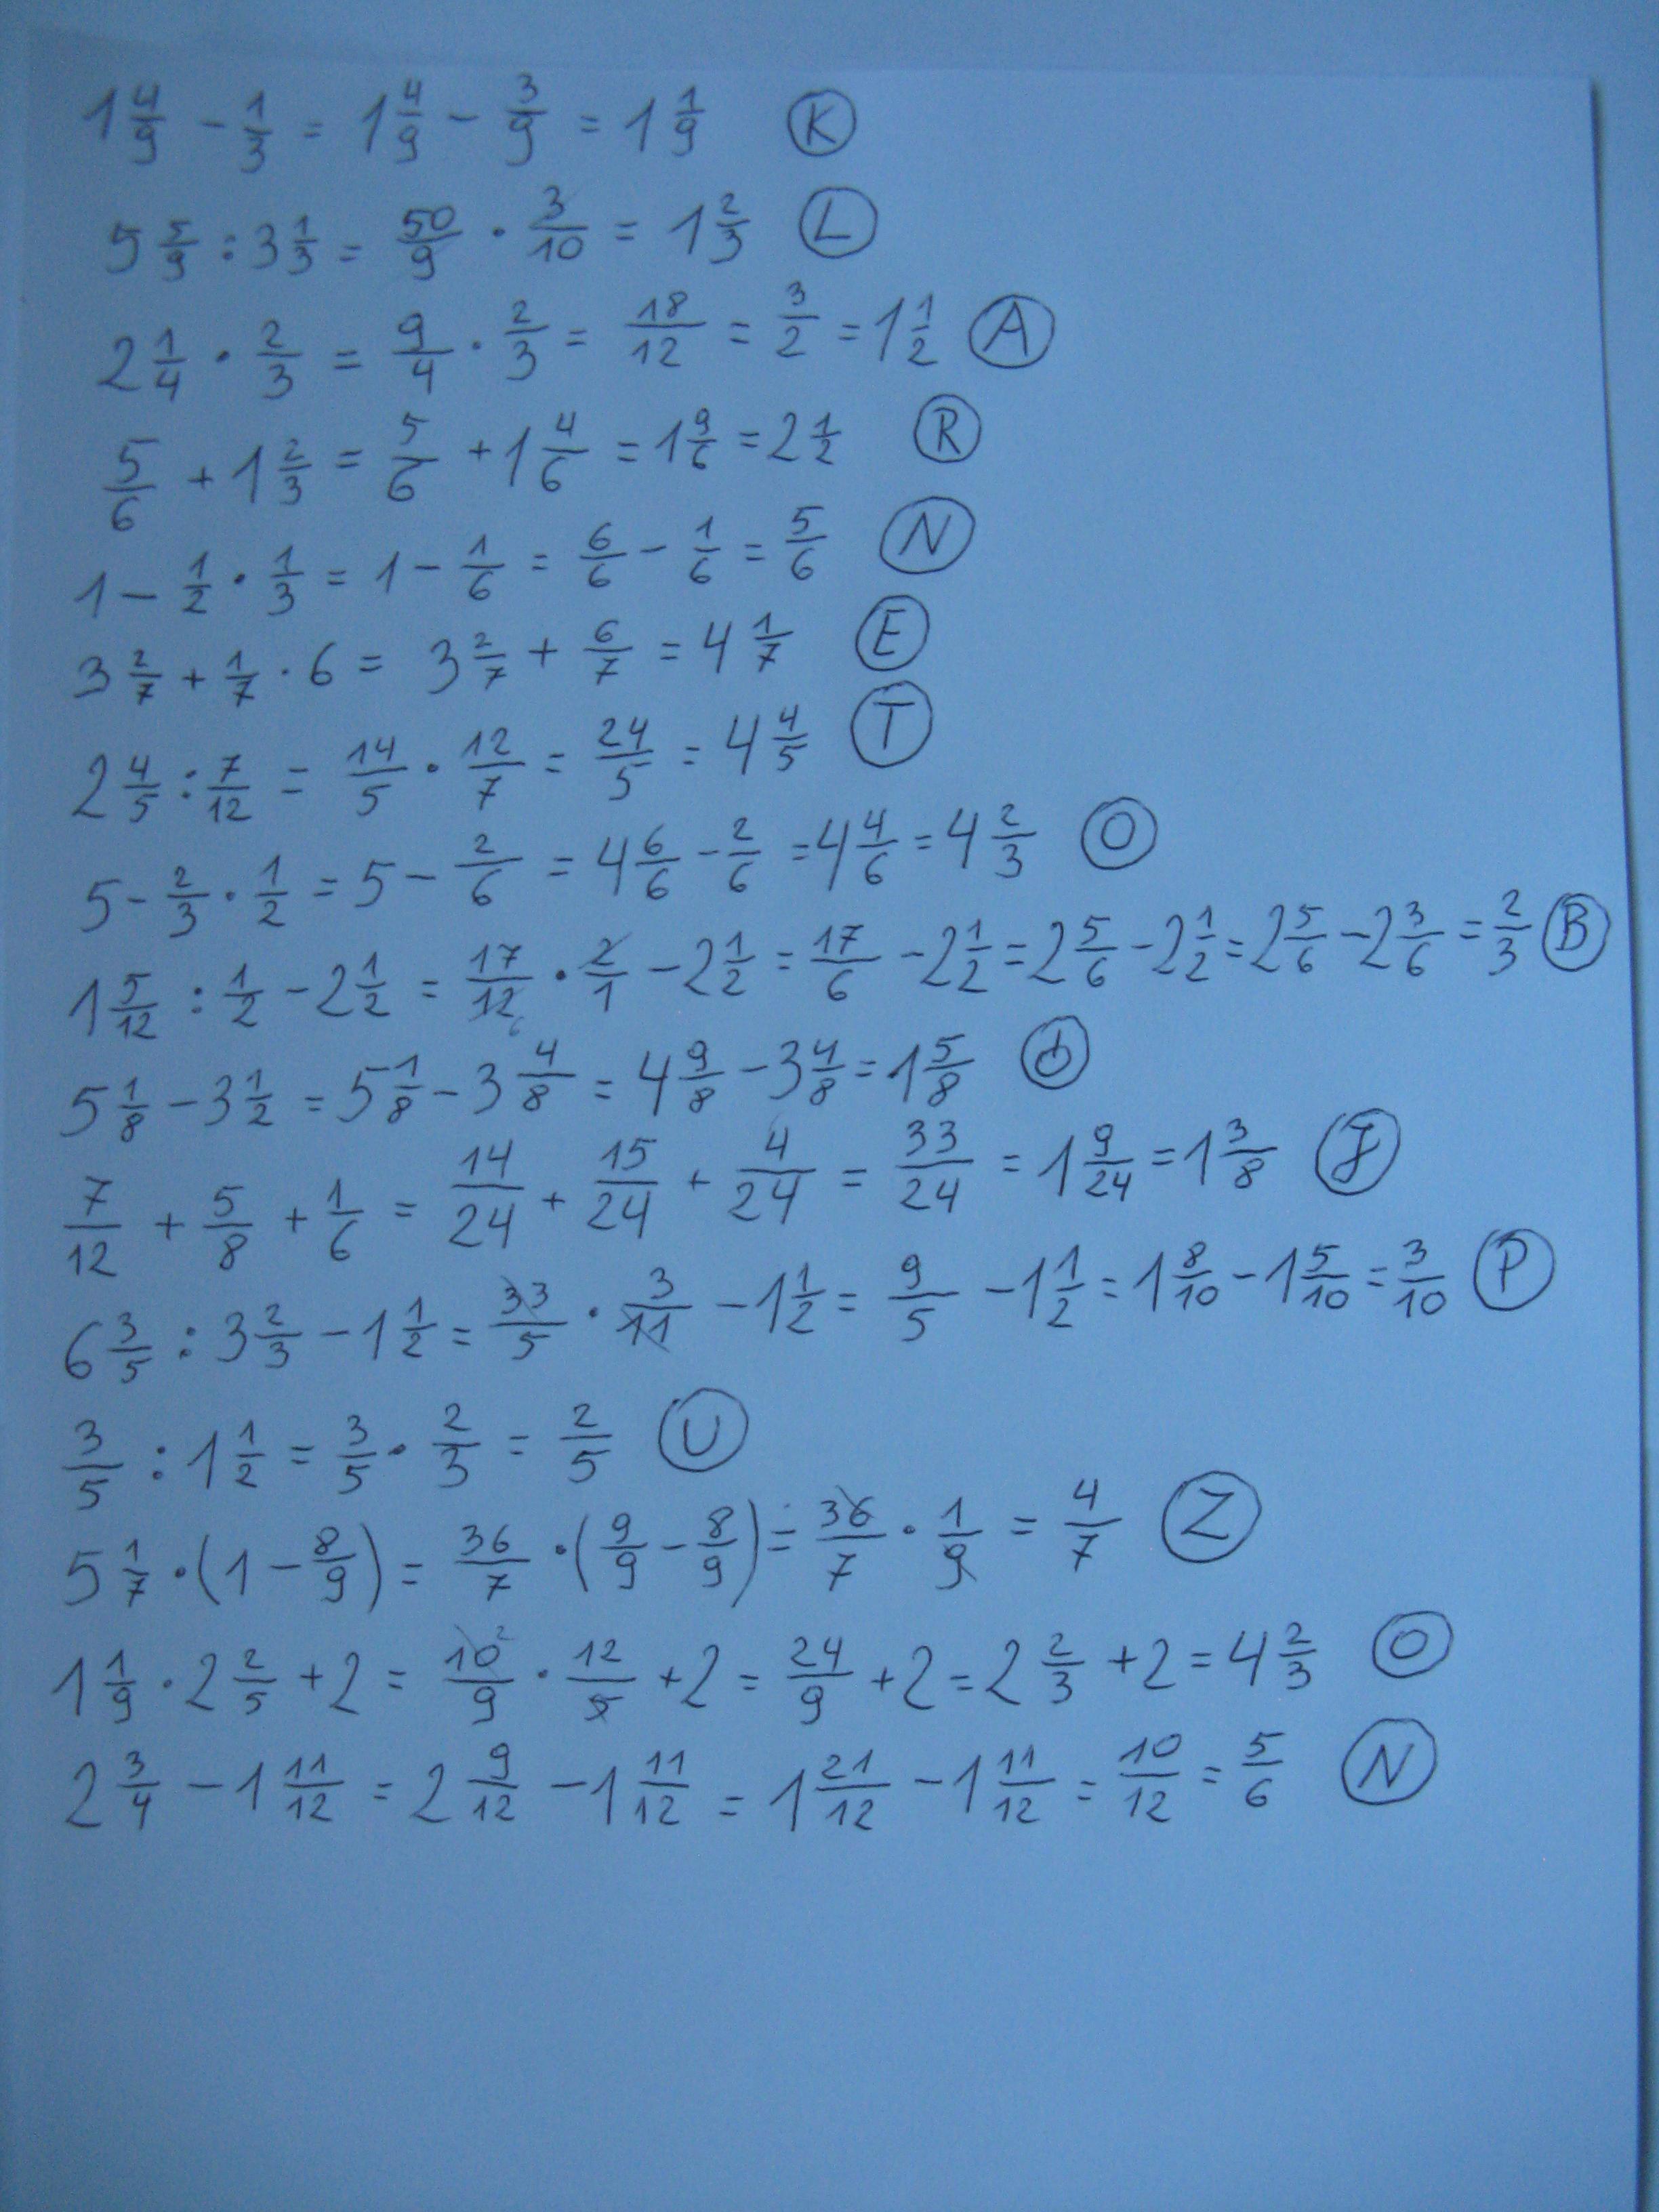 1 4/9 - 1/3 = 1 4/9 - 3/9 = 1 1/9 K
5 5/9 : 3 1/3 = 50/9 · 3/10 = 1 2/3 L
2 1/4 · 2/3 = 9/4 · 2/3 = 18/12 = 3/2 = 1 1/2 A
5/6 + 1 2/3 = 5/6 + 1 4/6 = 1 9/6 = 2 1/2 R
1 - 1/2 · 1/3 = 1 - 1/6 = 6/6 - 1/6 = 5/6 N
3 2/7 + 1/7 · 6 = 3 2/7 + 6/7 = 4 1/7 E
2 4/5 : 7/12 = 14/5 · 12/7 = 24/5 = 4 4/5 T
5 - 2/3 · 1/2 = 5 - 2/6 = 4 6/6 - 2/6 = 4 4/6 = 4 2/3 O
1 5/12 : 1/2 - 2 1/2 = 17/12 6 · 2/1 - 2 1/2 = 17/6 - 2 1/2 = 2 5/6 - 2 1/2 = 2 5/6 - 2 3/6 = 2/3 B
5 1/8 - 3 1/2 = 5 1/8 - 3 4/8 = 4 9/8 - 3 4/8 = 1 5/8
7/12 + 5/8 + 1/6 = 14/24 + 15/24 + 4/24 = 33/24 = 1 9/24 = 1 3/8 J
6 3/5 : 3 2/3 - 1 1/2 = 33/5 · 3/11 - 1 1/2 = 9/5 - 1 1/2 = 1 8/10 - 1 5/10 = 3/10 P
3/5 : 1 1/2 = 3/5 · 2/3 = 2/5 U
5 1/7 · (1 - 8/9) = 36/7 · (9/9 - 8/9) = 36/7 · 1/9 = 4/7 Z
1 1/9 · 2 2/5 + 2 = 10 2/9 · 12/5 + 2 = 24/9 + 2 = 2 2/3 + 2 = 4 2/3 O
2 3/4 - 1 11/12 = 2 9/12 - 1 11/12 = 1 21/12 - 1 11/12 = 10/12 = 5/6 N